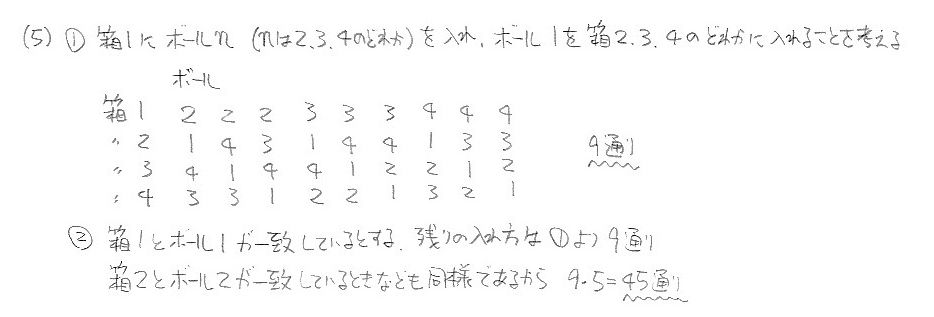 (5) ① 箱1に ボールn (nは2.3.4のどれか) を入れ、ボール1を箱2.3.4のどれかに入れることを考える
ボール
箱1 2 2 2 3 3 3 4 4 4
〃2 1 4 3 1 4 4 1 3 3 9通り
〃3 4 1 4 4 1 2 2 1 2
〃4 3 3 1 2 2 1 3 2 1
② 箱1とボール1が一致しているとする. 残りの入れ方は①より9通り
箱2とボール2が一致しているときなども同様であるから 9・5=45通り